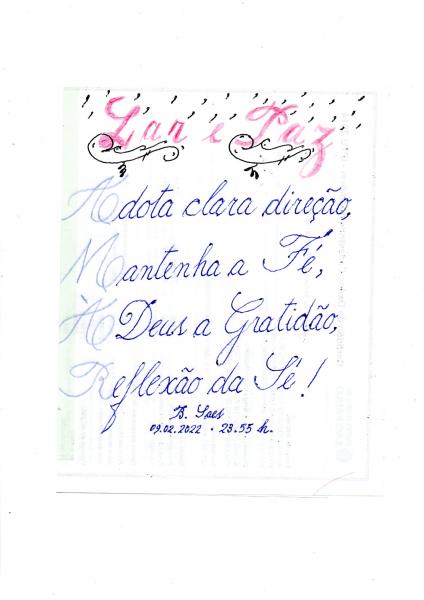 Lar e Paz
Adota clara direção,
Mantenha a Fé,
À Deus a Gratidão,
Reflexão da Sé!
B. Saes
09.02.2022 · 23.55 h.